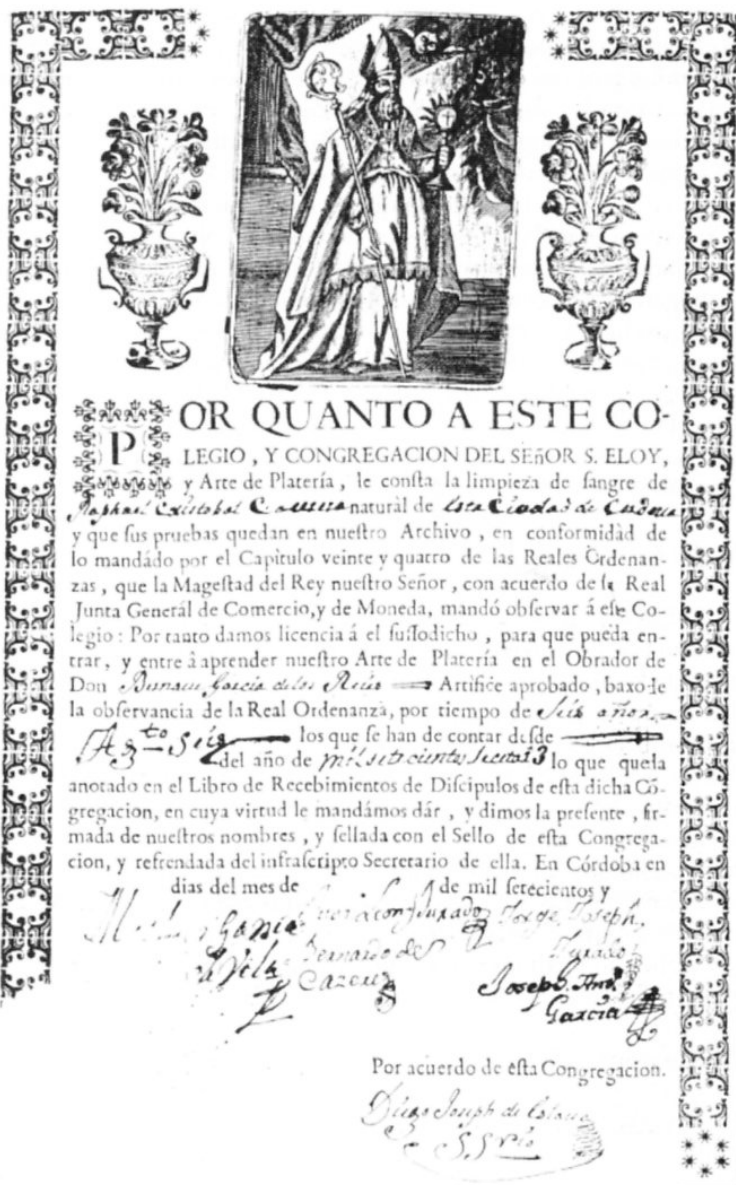 POR QUANTO A ESTE CO-
LEGIO, Y CONGREGACION DEL SEñOR S. ELOY,
y Arte de Platería, le conſta la limpieza de ſangre de
Raphael Cristobal natural de esta Ciudad de Cordova
y que ſus pruebas quedan en nueſtro Archivo, en conformidad de
lo mandádo por el Capitulo veinte y quatro de las Reales Ordenan-
zas, que la Mageſtad del Rey nueſtro Señor, con acuerdo de la Real
Junta Generál de Comercio, y de Moneda, mandó obſervar á eſte Co-
legio: Por tanto damos licencia á el ſuſſodicho, para que pueda en-
trar, y entre à aprender nueſtro Arte de Platería en el Obrador de
Don Garcia de los Reies Artifice aprobado, baxo de
la obſervancia de la Real Ordenanza, por tiempo de seis años
Ag.to seis los que ſe han de contar deſde
del año de mil setecientos 3 lo que queda
anotado en el Libro de Recebimientos de Diſcipulos de eſta dicha Cõ-
gregacion, en cuya virtud le mandámos dár, y dimos la preſente, fir-
mada de nueſtros nombres, y ſellada con el Sello de eſta Congrega-
cion, y refrendada del infraſcripto Secretario de ella. En Córdoba en
dias del mes de de mil ſetecientos y
Garcia Jurado Jorge Joseph
Avila Bernardo de Jurado
Cazeres Joseph Ant.o
Garcia
Por acuerdo de eſta Congregacion.
Diego Joseph de
S. Srio